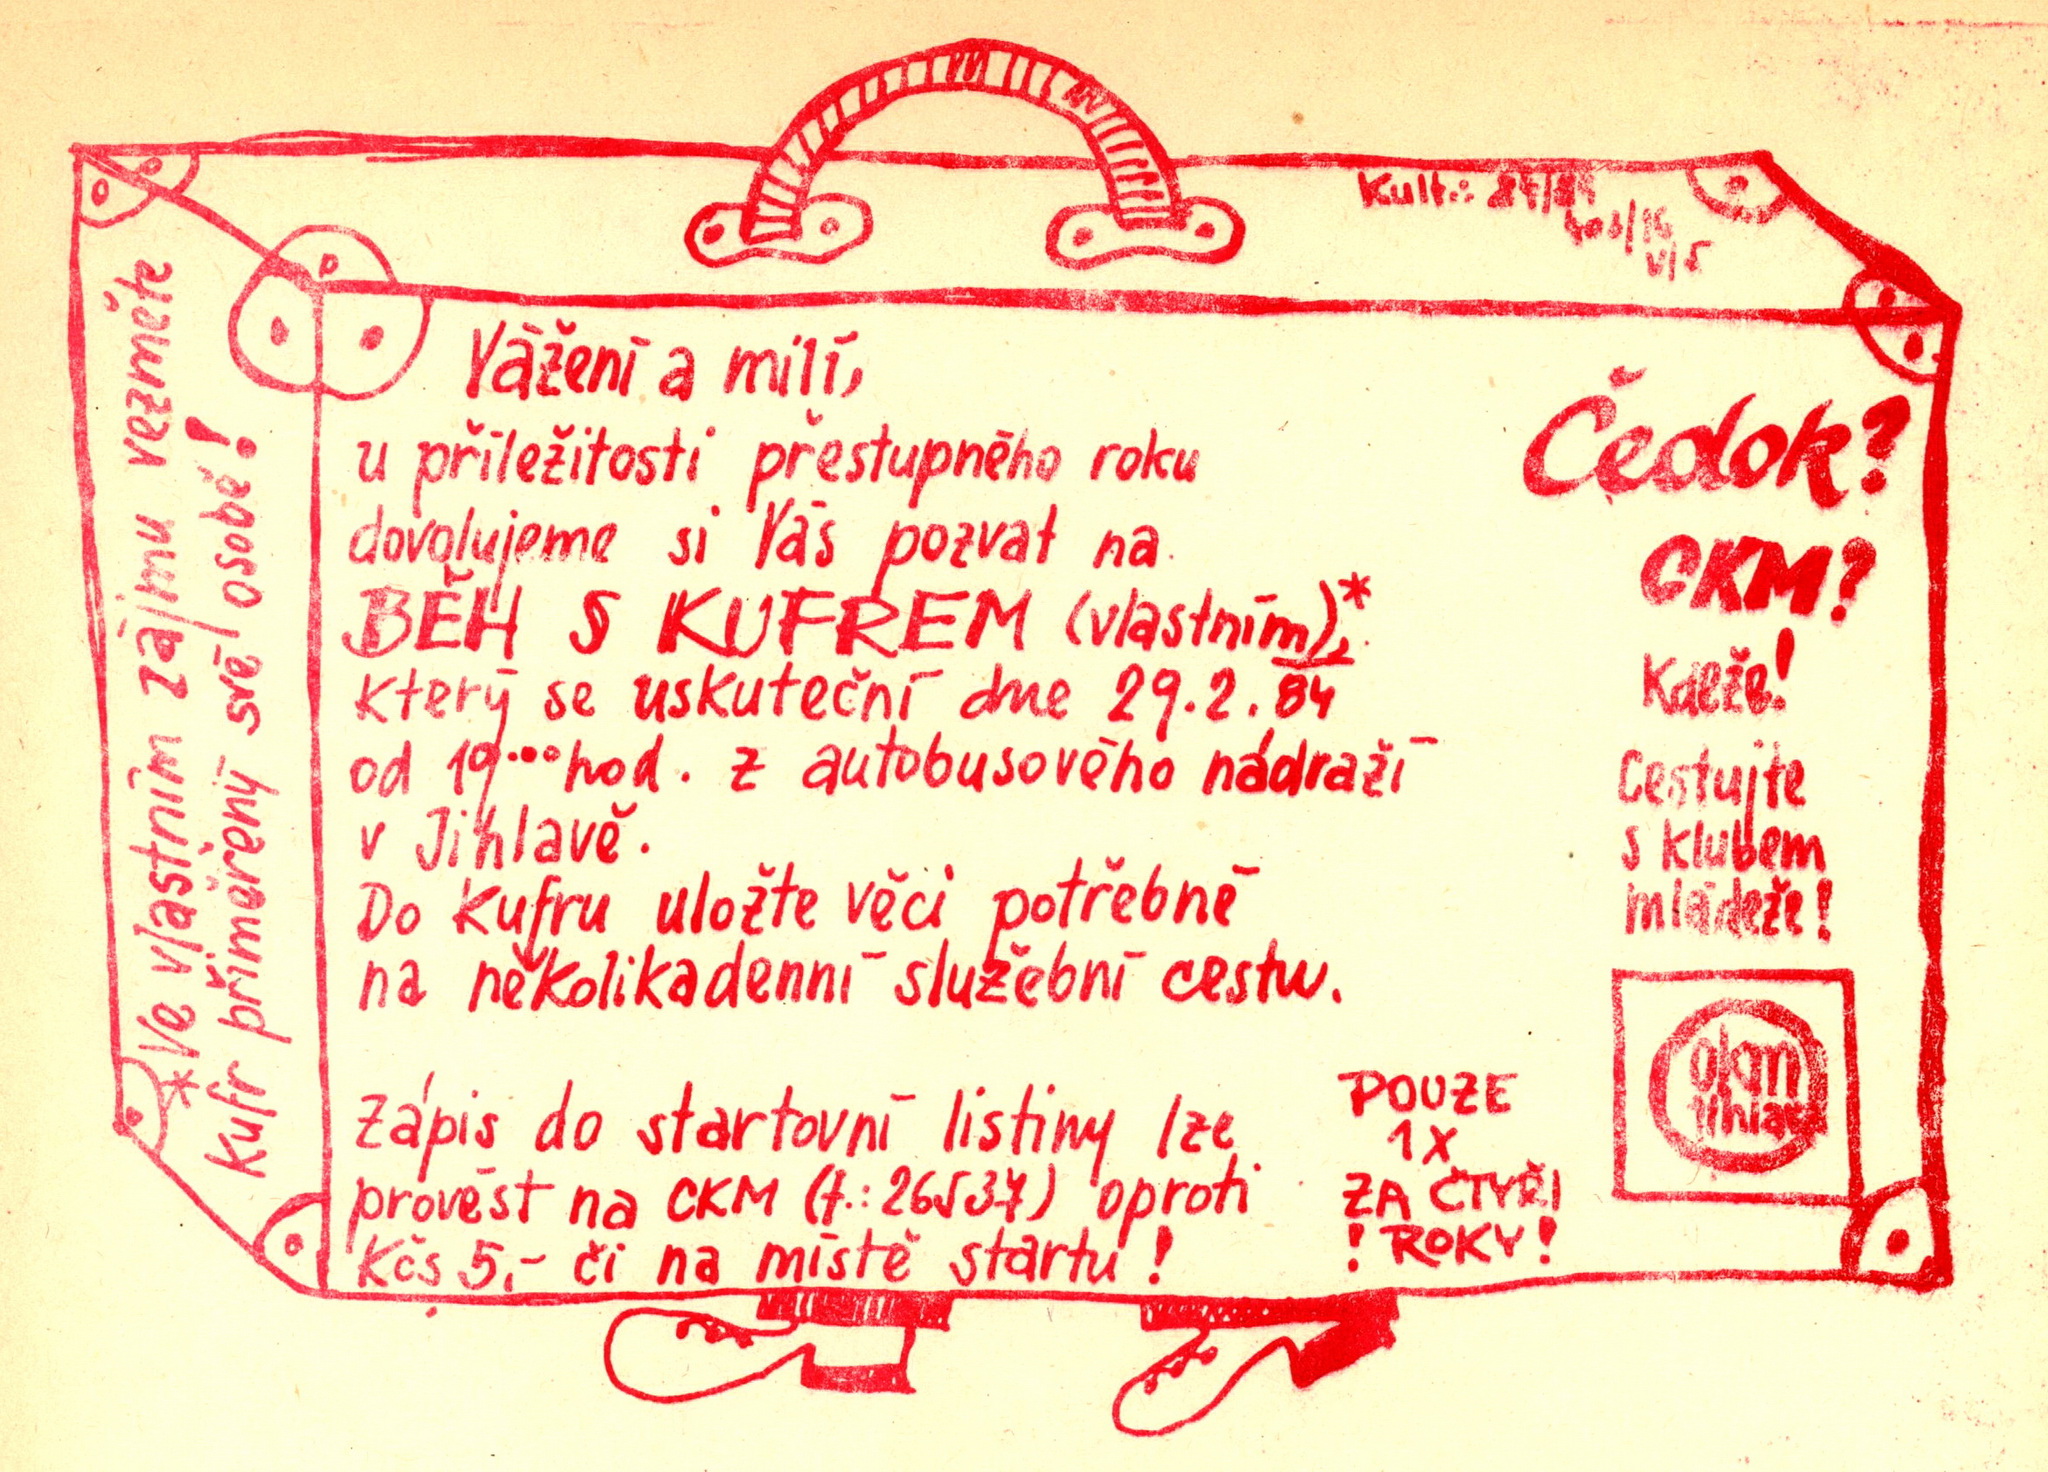 Kult.: 84/84
Vážení a milí,
u příležitosti přestupného roku
dovolujeme si Vás pozvat na
BĚH S KUFREM (vlastním),*
který se uskuteční dne 29.2.84
od 19ºººhod. z autobusového nádraží
v Jihlavě.
Do kufru uložte věci potřebné
na několikadenní služební cestu.
Zápis do startovní listiny lze
provést na CKM (t.: 26537) oproti
Kčs 5,- či na místě startu!
POUZE
1X
ZA ČTYŘI
! ROKY!
Čedok?
CKM?
Kdeže!
Cestujte
s klubem
mládeže!
okm
Jihlava
*Ve vlastním zájmu vezměte
kufr přiměřený své osobě!